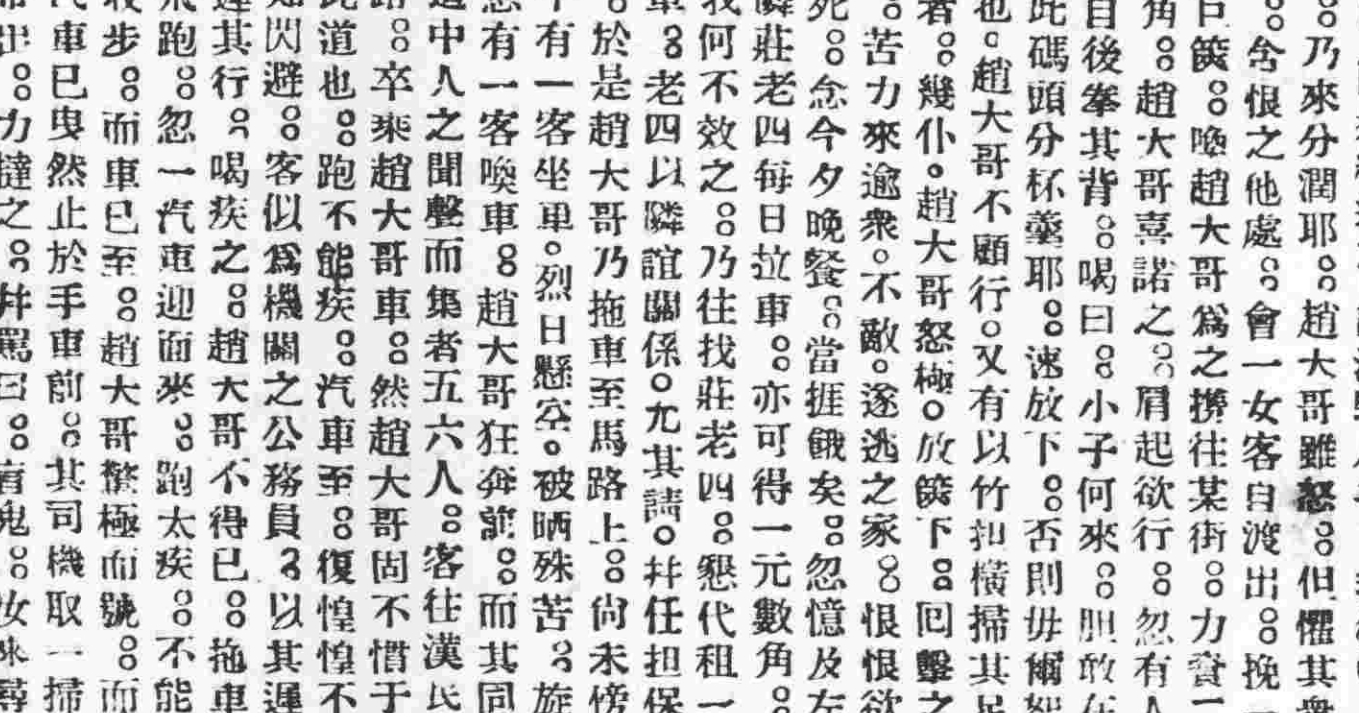 乃來分潤耶。趙大哥雖怒。但懼其衆
含恨之他處。會一女客自渡出。挽
篋。喚趙大哥爲之擠往某街。力資一
角。趙大哥喜諾之。肩起欲行。忽有人
自後拳其背。喝曰。小子何來。胆敢在
此碼頭分杯羹耶。速放下。否則毋爾恕
也。趙大哥不顧行。又有以竹扣橫掃其足
者。幾仆。趙大哥怒極。放篋下。回擊之
苦力來逾衆。不敵。遂逃之家。恨恨欲
死。念今夕晚餐。當捱餓矣。忽憶及左
隣莊老四每日拉車。亦可得一元數角。
我何不效之。乃往找莊老四。懇代租一
車。老四以隣誼關係。允其請。幷任担保
於是趙大哥乃拖車至馬路上。尙未傍
有一客坐車。烈日懸空。被晒殊苦。旋
有一客喚車。趙大哥狂奔前。而其同
道中人之聞聲而集者五六人。客往漢民
路。卒乘趙大哥車。然趙大哥固不慣于
此道也。跑不能疾。汽車至。復惶惶不
知閃避。客似爲機關之公務員。以其遲
其行。喝疾之。趙大哥不得已。拖車
飛跑。忽一汽車迎面來。跑太疾。不能
步。而車已至。趙大哥驚極而號。而
汽車已曳然止於手車前。其司機取一掃
出。力撻之。幷罵曰。盲鬼。汝來尋